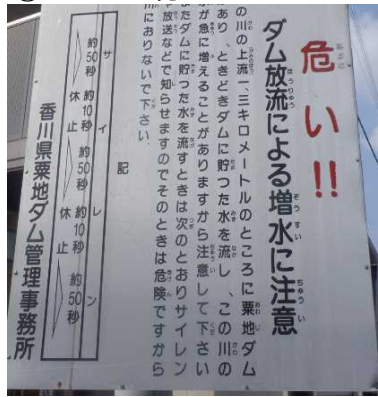 危い!!
ダム放流による増水に注意
の川の上流一、三キロメートルのところに粟地ダム
あり、ときどきダムに貯つた水を流し、この川の
水が急に増えることがありますから注意して下さい
まだダムに貯つた水を流すときは次のとおりサイレン
放送などで知らせますのでそのときは危険ですから
川におりないで下さい.
記
サイレン
約50秒
約10秒
休止
約50秒
約10秒
休止
約50秒
香川県粟地ダム管理事務所